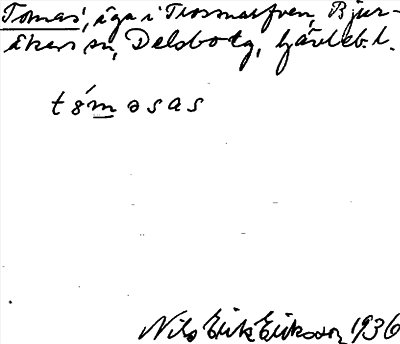 Tomas', äga i Trosnarfven, Bjur-
åkers sn, Delsbo tg, Gävleb. l.
tómasas
Nils Erik Eriksson 1936